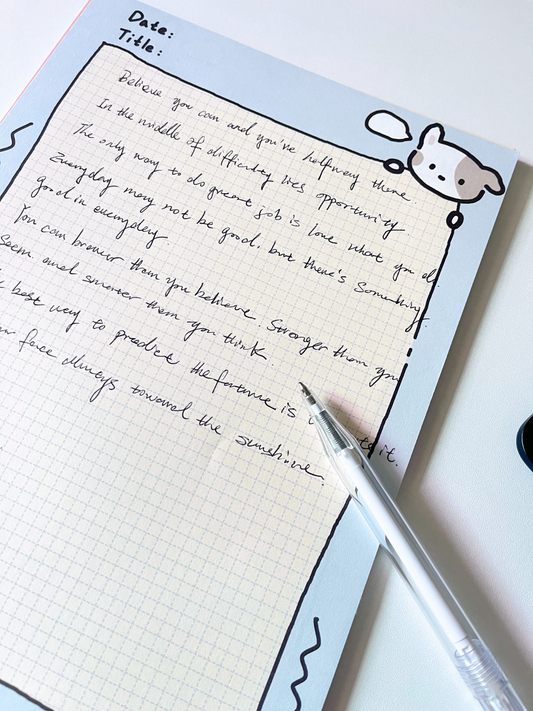 Date:
Title:
Believe you can and you've halfway there
In the middle of difficulty lies opportunity.
The only way to do great job is love what you do.
Everyday may not be good. but there's Something
good in everyday
You can braver than you believe. Stronger than you
Seem and smarter than you think.
best way to predict the is it.
face always toward the sunshine.